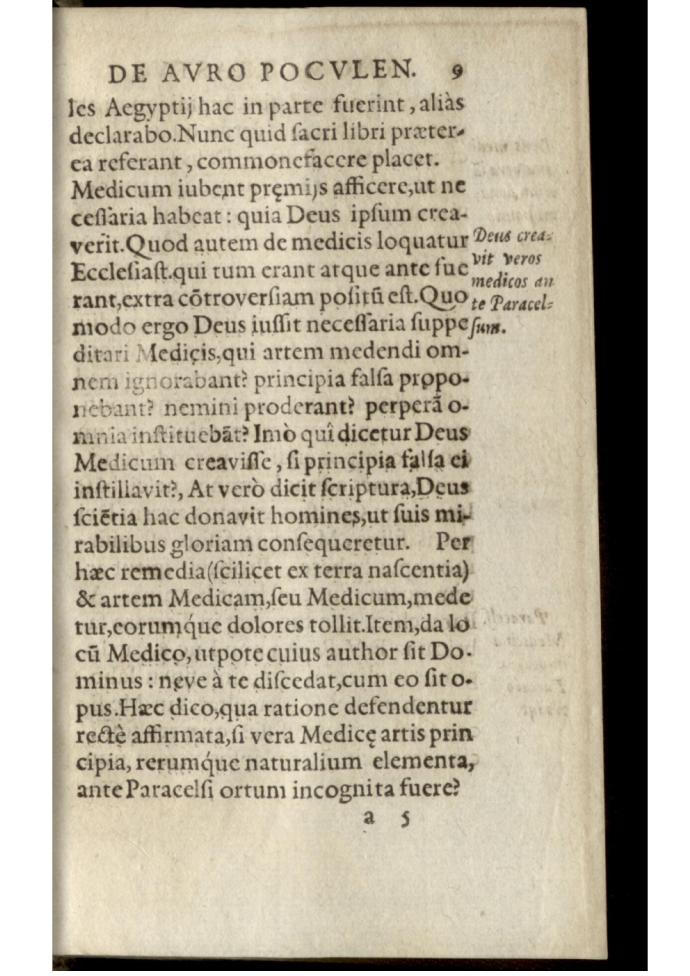 DE AVRO POCVLEN. 9
les Aegyptij hac in parte fuerint, aliàs
declarabo.Nunc quid ſacri libri præter-
ea referant, commonefacere placet.
Medicum iubent pręmijs afficere,ut ne
ceſſaria habeat: quia Deus ipſum crea-
verit.Quod autem de medicis loquatur
Eccleſiaſt.qui tum erant atque ante fue
rant,extra cõtroverſiam poſitũ eſt.Quo
modo ergo Deus iuſſit neceſſaria ſuppe
ditari Medicis,qui artem medendi om-
nem ignorabant? principia falſa propo-
nebant? nemini proderant? perperã o-
mnia inſtituebãt? Imò quî dicetur Deus
Medicum creaviſſe, ſi principia falſa ei
inſtillavit?, At verò dicit ſcriptura,Deus
ſciẽtia hac donavit homines,ut ſuis mi-
rabilibus gloriam conſequeretur. Per
hæc remedia(ſcilicet ex terra naſcentia)
& artem Medicam,ſeu Medicum,mede
tur,eorumq́ue dolores tollit.Item,da lo
cũ Medico, utpote cuius author ſit Do-
minus: neve à te diſcedat,cum eo ſit o-
pus.Hæc dico,qua ratione defendentur
rectè affirmata,ſi vera Medicę artis prin
cipia, rerumq́ue naturalium elementa,
ante Paracelſi ortum incognita fuere?
a 5
Deus crea-
vit veros
medicos an
te Paracel-
ſum.